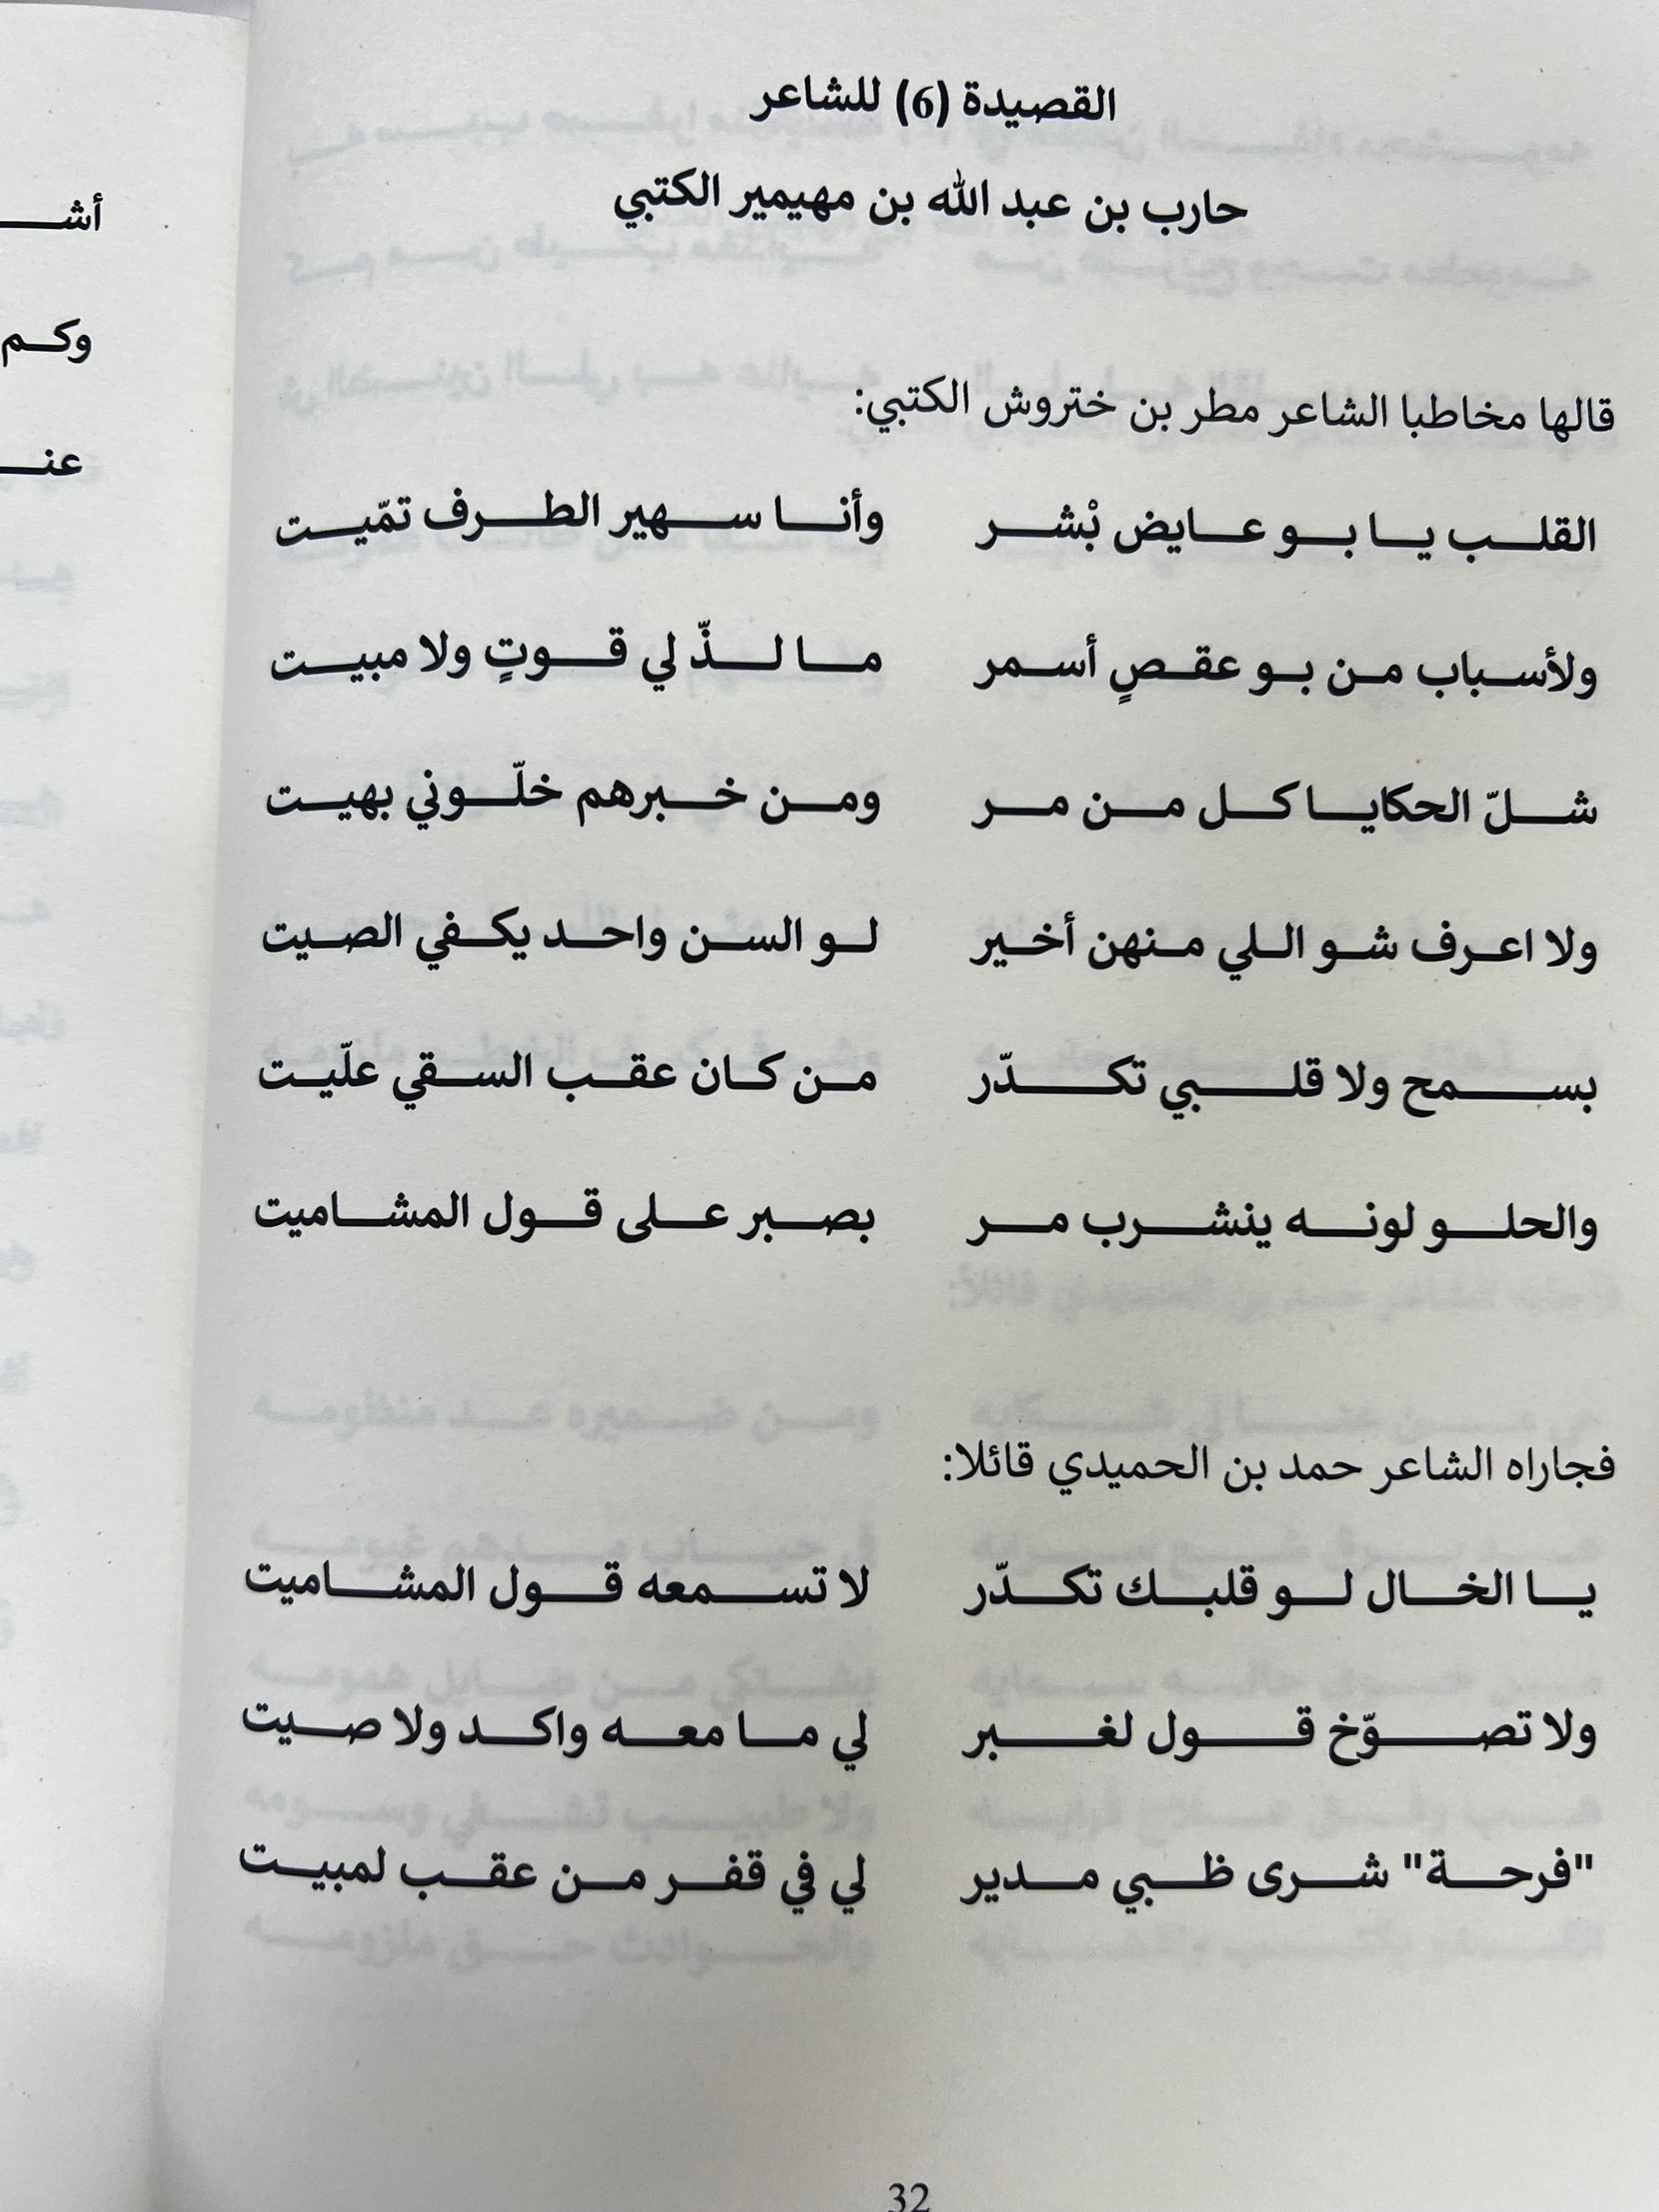 القصيدة (6) للشاعر
حارب بن عبد الله بن مهيمير الكتبي
قالها مخاطبا الشاعر مطر بن ختروش الكتبي:
القلب يا بو عايض بْشر وأنا سهير الطرف تمّيت
ولأسباب من بو عقصٍ أسمر ما لذّ لي قوتٍ ولا مبيت
شلّ الحكايا كل من مر ومن خبرهم خلّوني بهيت
ولا اعرف شو اللي منهن أخير لو السن واحد يكفي الصيت
بسمح ولا قلبي تكدّر من كان عقب السقي علّيت
والحلو لونه ينشرب مر بصبر على قول المشاميت
فجاراه الشاعر حمد بن الحميدي قائلا:
يا الخال لو قلبك تكدّر لا تسمعه قول المشاميت
ولا تصوّخ قول لغبر لي ما معه واكد ولا صيت
"فرحة" شرى ظبي مدير لي في قفر من عقب لمبيت
32
أشـ
وكم
عنـ